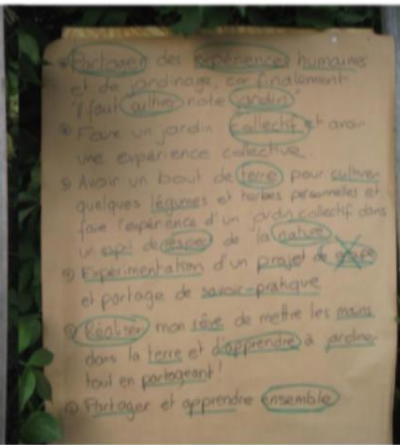 Partager des expériences humaines
et de jardinage, car finalement
"il faut cultiver notre jardin"
Faire un jardin collectif et avoir
une expérience collective.
Avoir un bout de terre pour cultiver
quelques légumes et herbes personnelles et
faire l'expérience d'un jardin collectif dans
un esprit de respect de la nature
Expérimentation d'un projet de groupe
et partage de savoir-pratique
Réaliser mon rêve de mettre les mains
dans la terre et d'apprendre à jardiner
tout en partageant!
Partager et apprendre ensemble